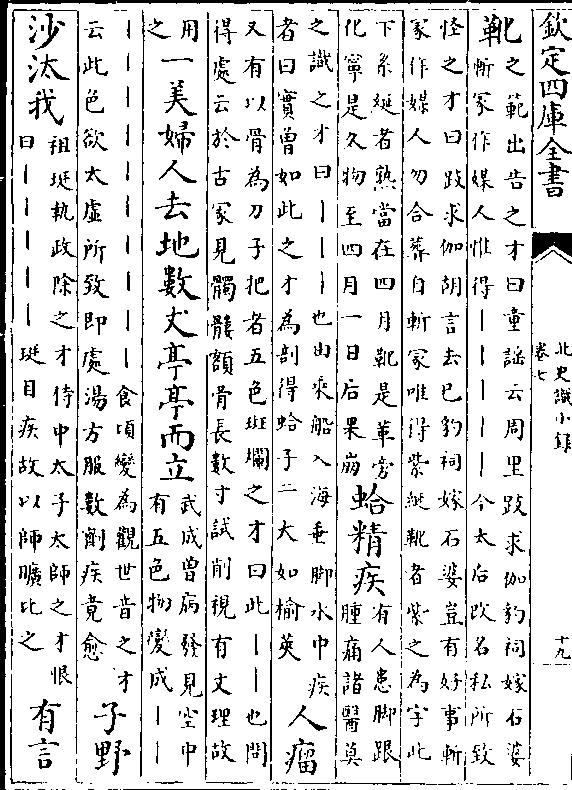 欽定四庫全書
北史識小録
卷七
十九
靴
之範出告之才曰童謡云周里跂求伽豹祠嫁石婆
斬冢作媒人惟得丨丨丨丨今太后改名私所致
怪之才曰跂求伽胡言去已豹祠嫁石婆豈有好事斬
冢作媒人勿合葬自斬冢唯得紫綖靴者紫之為字此
下系綖者熟當在四月靴是革旁
化寧是久物至四月一日后果崩
蛤精疾
有人患脚跟
腫痛諸醫莫
之識之才曰丨丨丨也由乘船入海垂脚水中疾
者曰實曽如此之才為剖得蛤子二大如榆莢
人瘤
又有以骨為刀子把者五色斑斕之才曰此丨丨也問
得處云於古冢見髑髏額骨長數寸試削視有文理故
用
之
一美婦人去地數丈亭亭而立
武成曽病發見空中
有五色物變成丨丨
丨丨丨丨丨丨丨丨丨丨食頃變為觀世音之才
云此色欲太虛所致即處湯方服數劑疾竟愈
子野
沙汰我
祖珽執政除之才侍中太子太師之才恨
曰丨丨丨丨丨珽目疾故以師曠比之
有言